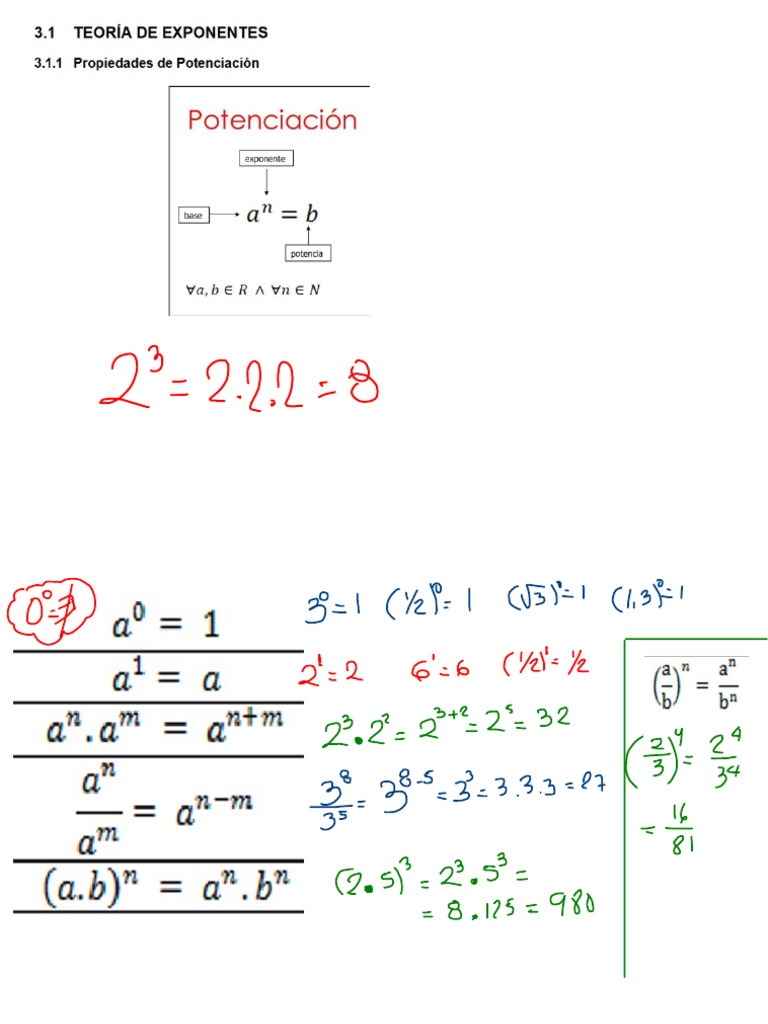 3.1 TEORÍA DE EXPONENTES
3.1.1 Propiedades de Potenciación
Potenciación
exponente
base
aⁿ = b
potencia
∀a, b ∈ R ∧ ∀n ∈ N
2³ = 2.2.2 = 8
a⁰ = 1
3⁰ = 1 (1/2)⁰ = 1 (√3)⁰ = 1 (1,3)⁰ = 1
a¹ = a
2¹ = 2 6¹ = 6 (1/2)¹ = 1/2
aⁿ.aᵐ = aⁿ⁺ᵐ
2³.2² = 2³⁺² = 2⁵ = 32
aⁿ/aᵐ = aⁿ⁻ᵐ
3⁸/3⁵ = 3⁸⁻⁵ = 3³ = 3.3.3 = 27
(a.b)ⁿ = aⁿ.bⁿ
(2.5)³ = 2³.5³ =
= 8.125 = 980
(a/b)ⁿ = aⁿ/bⁿ
(2/3)⁴ = 2⁴/3⁴
= 16/81